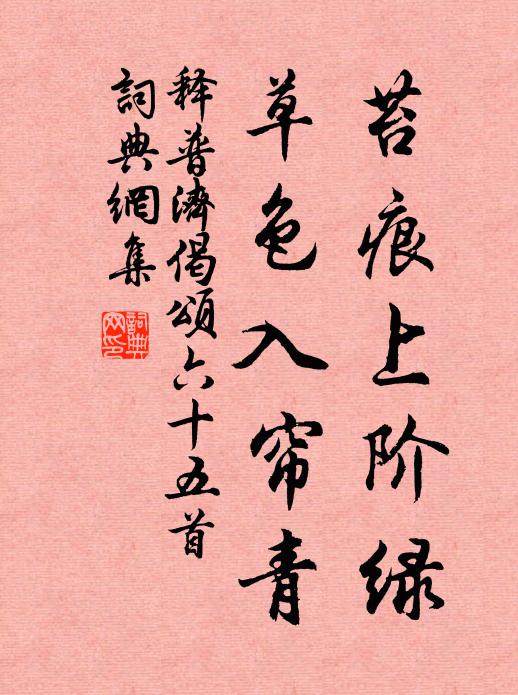 苔痕上阶绿
草色入帘青
释普濟偈頌六十五首
詞典網集
詞典
网印